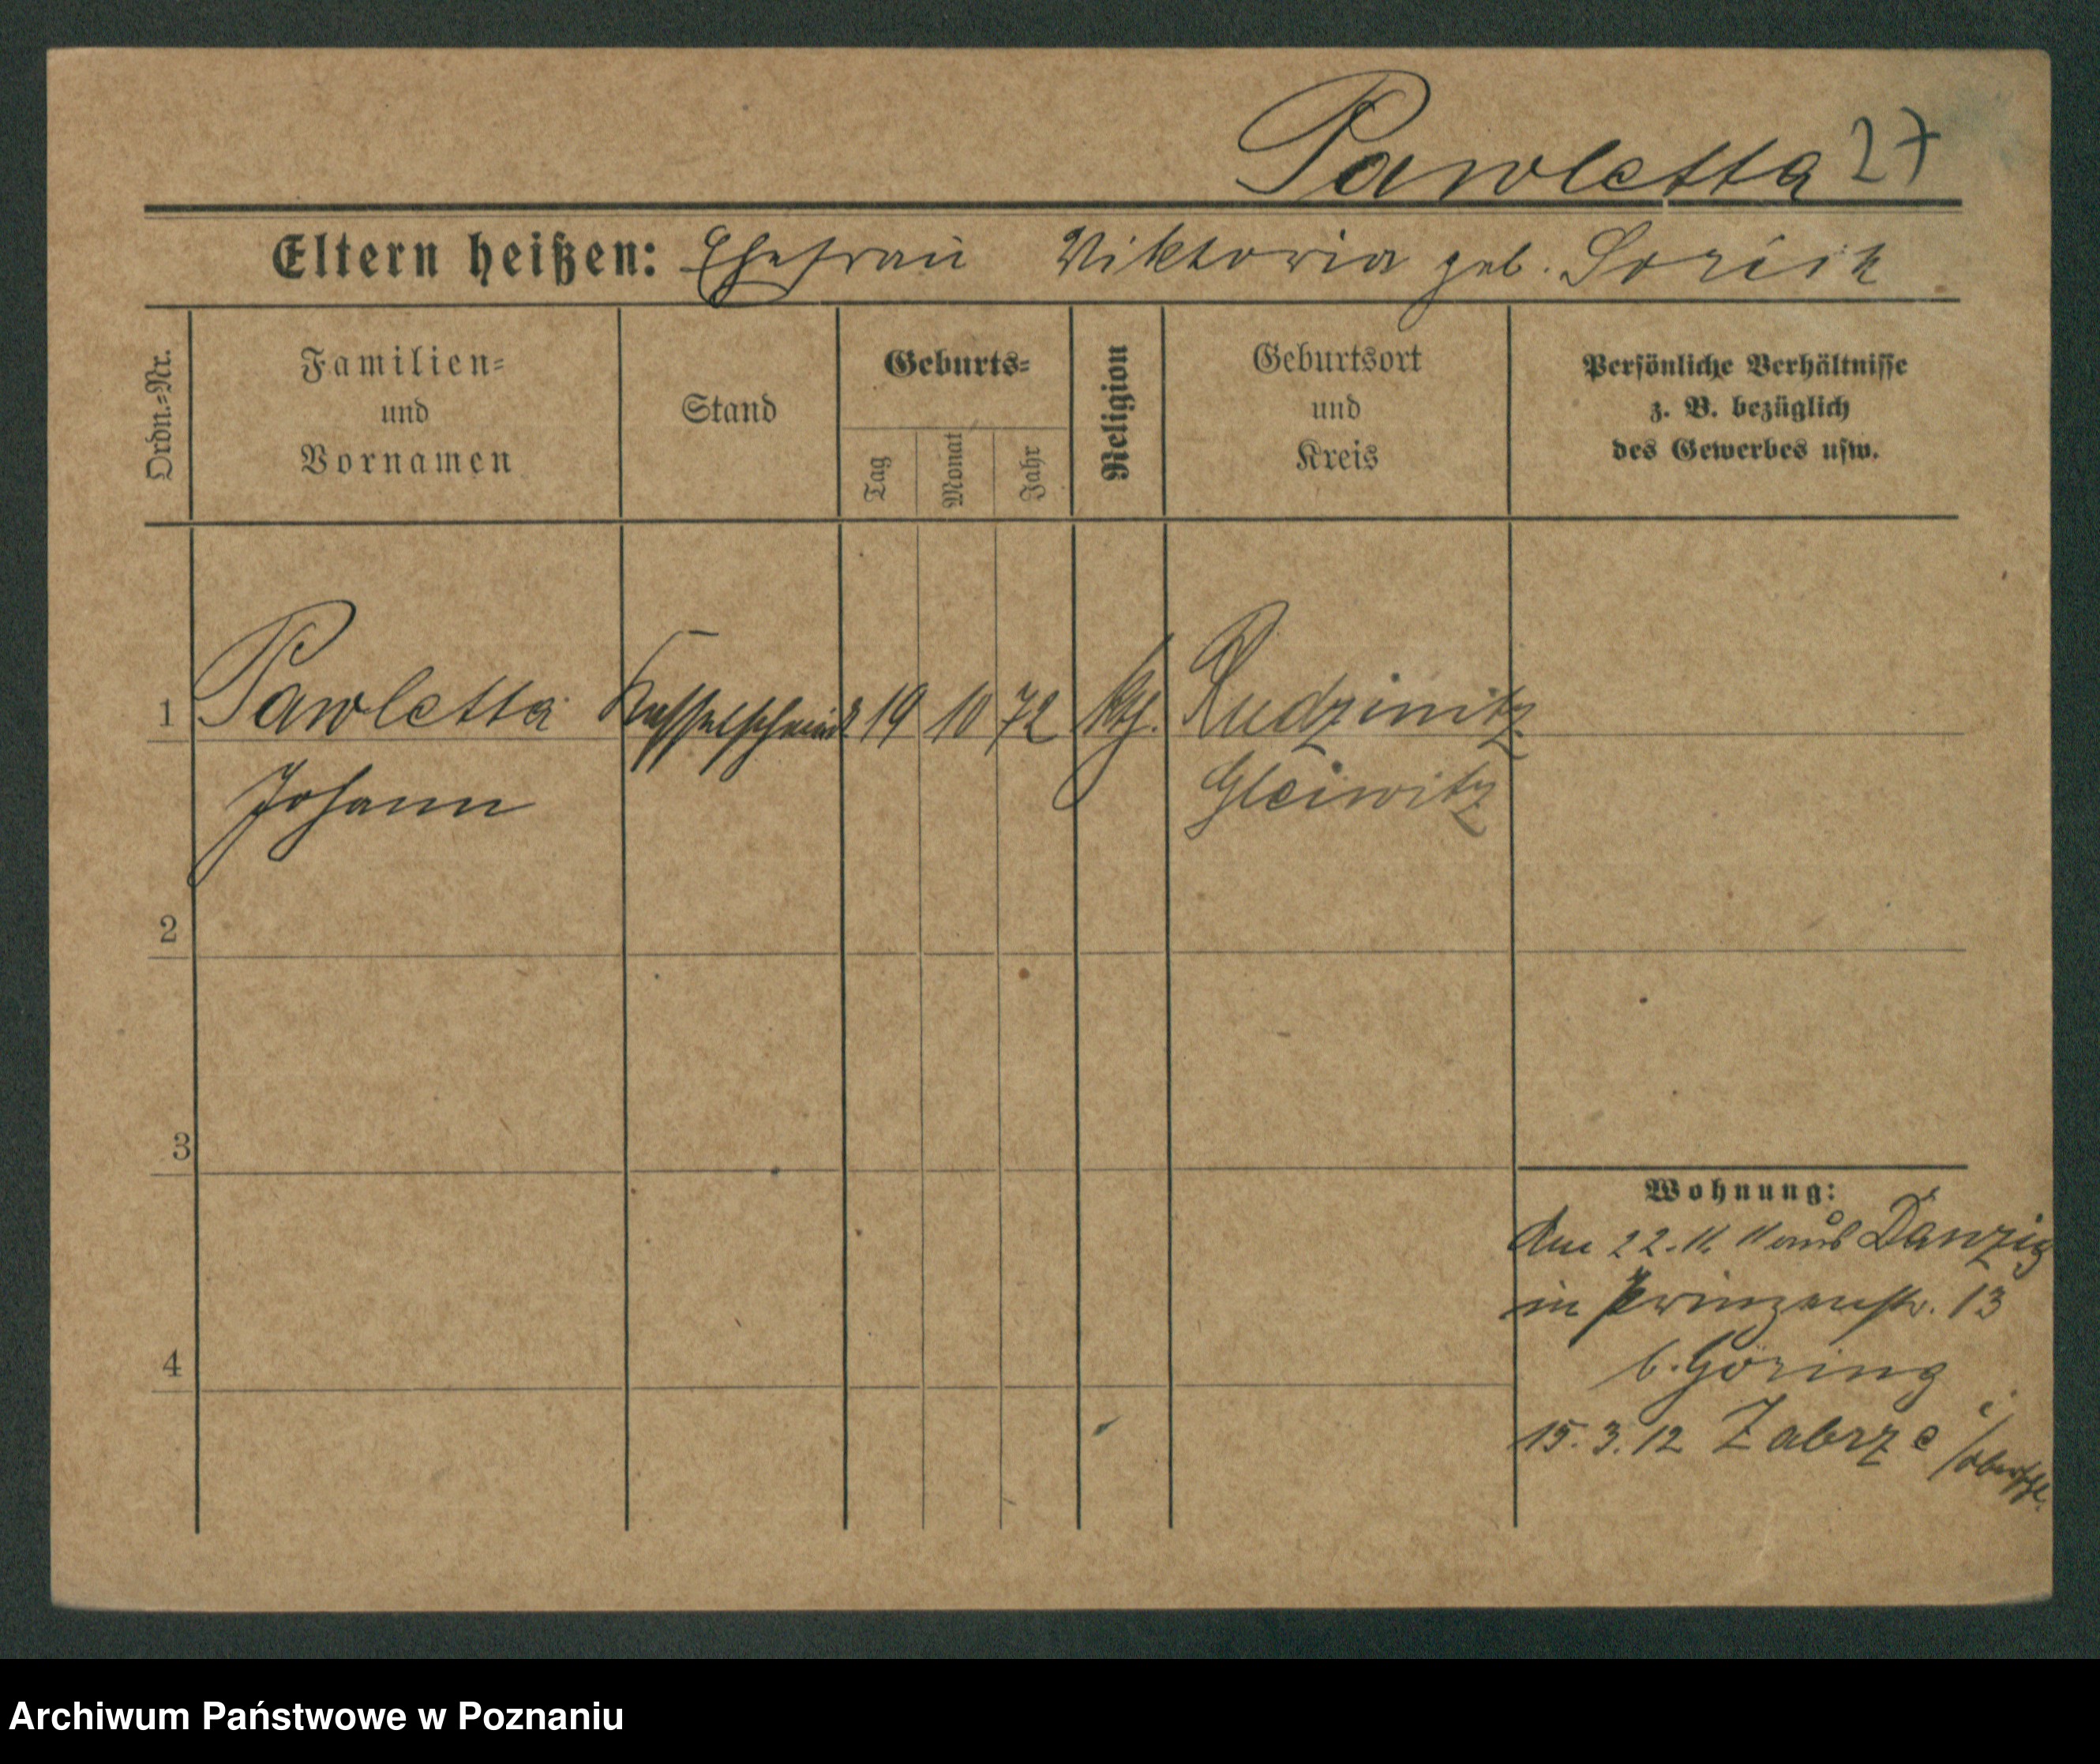 Pawletta 27
Eltern heißen: Ehefrau Viktoria geb.
Ordn.=Nr.
Familien=
und
Vornamen
Stand
Geburts=
Tag
Monat
Jahr
Religion
Geburtsort
und
Kreis
Persönliche Verhältnisse
z. B. bezüglich
des Gewerbes usw.
1 Pawletta Kesselschmied 19 10 72 kth. Rudzinitz
Johann Gleiwitz
2
3
4
Wohnung:
Am 22.11.11 aus Danzig
in Prinzenstr. 13
b. Göring
15.3.12 Zabrze i/Oberschl.
Archiwum Państwowe w Poznaniu